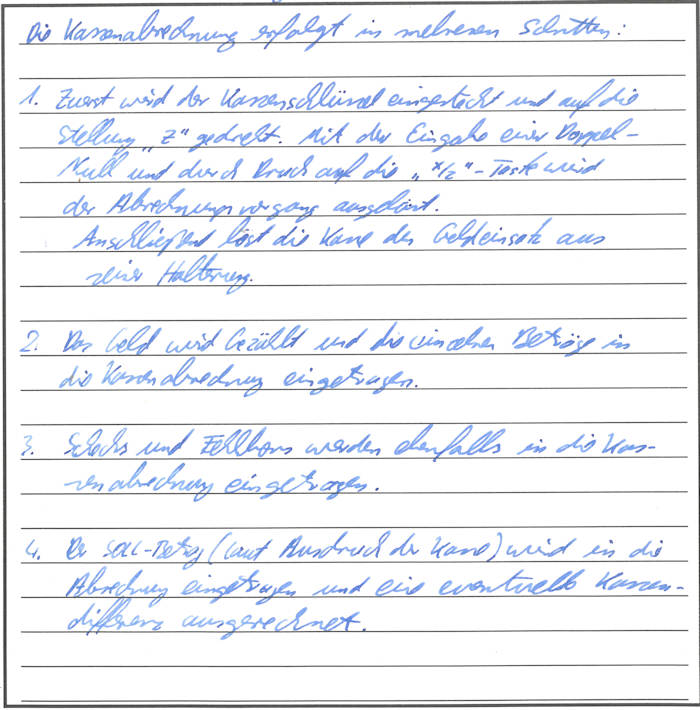 Die Kassenabrechnung erfolgt in mehreren Schritten:
1. Zuerst wird der Kassenschlüssel eingesteckt und auf die
Stellung „Z" gedreht. Mit der Eingabe einer Doppel-
Null und durch Druck auf die „X/Z"-Taste wird
der Abrechnungsvorgang ausgelöst.
Anschließend löst die Kasse den Geldeinsatz aus
seiner Halterung.
2. Das Geld wird gezählt und die einzelnen Beträge in
die Kassenabrechnung eingetragen.
3. Schecks und Fehlbons werden ebenfalls in die Kas-
senabrechnung eingetragen.
4. Der SOLL-Betrag (laut Ausdruck der Kasse) wird in die
Abrechnung eingetragen und eine eventuelle Kassen-
differenz ausgerechnet.